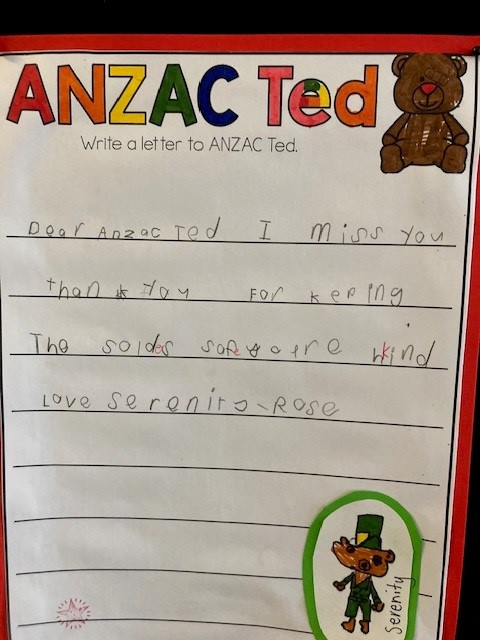 ANZAC Ted
Write a letter to ANZAC Ted.
Dear Anzac Ted I miss you
thank you For keping
The soldes safe
kind
Love Serenity-Rose
Serenity